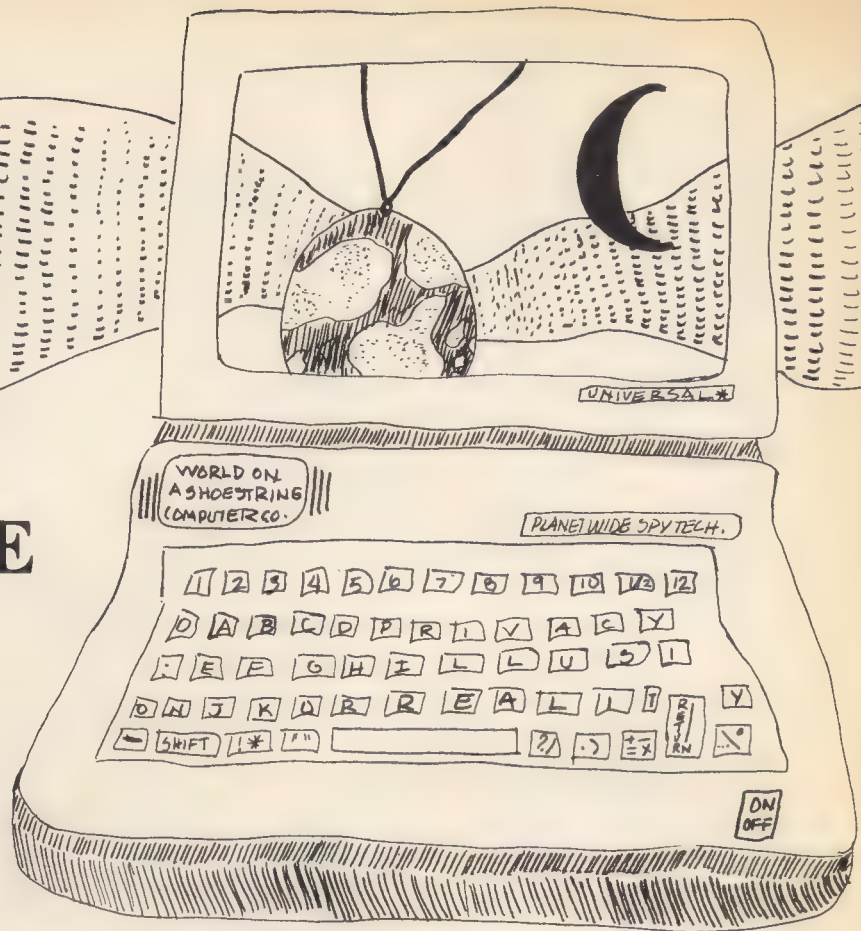 UNIVERSAL*
WORLD ON
A SHOESTRING
COMPUTER CO.
PLANET WIDE SPY TECH.
E
1 2 3 4 5 6 7 8 9 10 1/2 12
O A B C D P R I V A C Y
: E F G H I L L U S I
O N J K Q R R E A L I T Y
SHIFT !* "" ?/ .) RETURN
ON
OFF